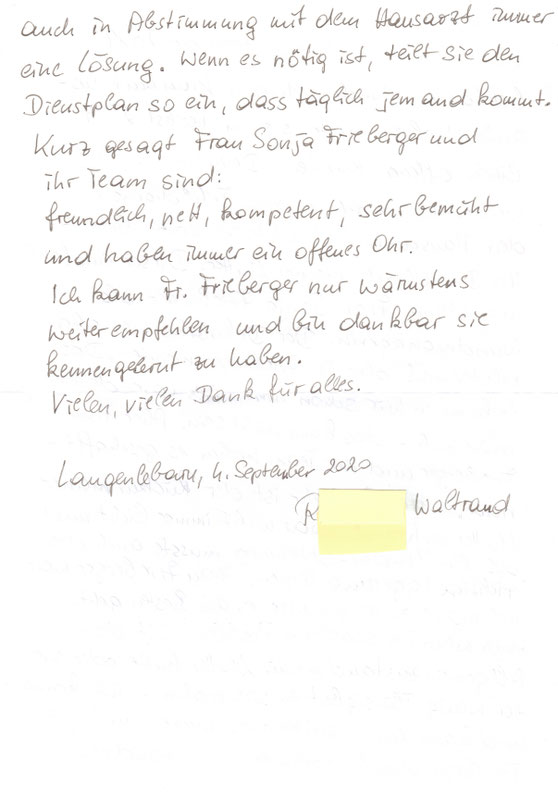 auch in Abstimmung mit dem Hausarzt immer
eine Lösung. Wenn es nötig ist, teilt sie den
Dienstplan so ein, dass täglich jemand kommt.
Kurz gesagt Frau Sonja Frieberger und
ihr Team sind:
freundlich, nett, kompetent, sehr bemüht
und haben immer ein offenes Ohr.
Ich kann Fr. Frieberger nur wärmstens
weiterempfehlen und bin dankbar sie
kennengelernt zu haben.
Vielen, vielen Dank für alles.
Langenlebarn, 4. September 2020
R Waltraud